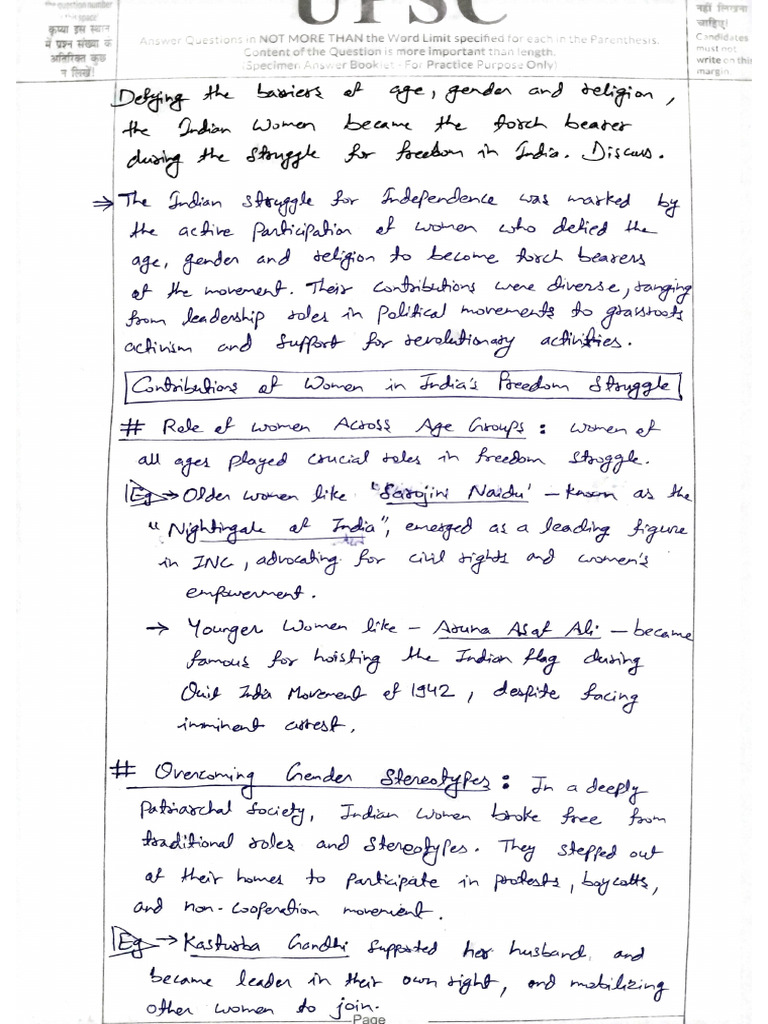 the question number
this space
कृप्या इस स्थान
में प्रश्न संख्या के
अतिरिक्त कुछ
न लिखें।
UPSC
Answer Questions in NOT MORE THAN the Word Limit specified for each in the Parenthesis.
Content of the Question is more important than length.
(Specimen Answer Booklet - For Practice Purpose Only)
नहीं लिखना
चाहिए।
Candidates
must not
write on this
margin.
Defying the barriers of age, gender and religion,
the Indian Women became the torch bearer
during the struggle for freedom in India. Discuss.
⇒ The Indian struggle for Independence was marked by
the active participation of women who defied the
age, gender and religion to become torch bearers
of the movement. Their contributions were diverse, ranging
from leadership roles in political movements to grassroots
activism and support for revolutionary activities.
Contributions of Women in India's Freedom Struggle
# Role of women Across Age Groups : women of
all ages played crucial roles in freedom struggle.
Eg → Older women like "Sarojini Naidu' - known as the
"Nightingale of India", emerged as a leading figure
in INC, advocating for civil rights and women's
empowerment.
→ Younger Women like - Aruna Asaf Ali - became
famous for hoisting the Indian flag during
Quit India Movement of 1942, despite facing
imminent arrest.
# Overcoming Gender Stereotypes : In a deeply
patriarchal society, Indian women broke free from
traditional roles and stereotypes. They stepped out
of their homes to participate in protests, boycotts,
and non-cooperation movement.
Eg → Kasturba Gandhi supported her husband, and
became leader in their own right, and mobilizing
other women to join.
Page